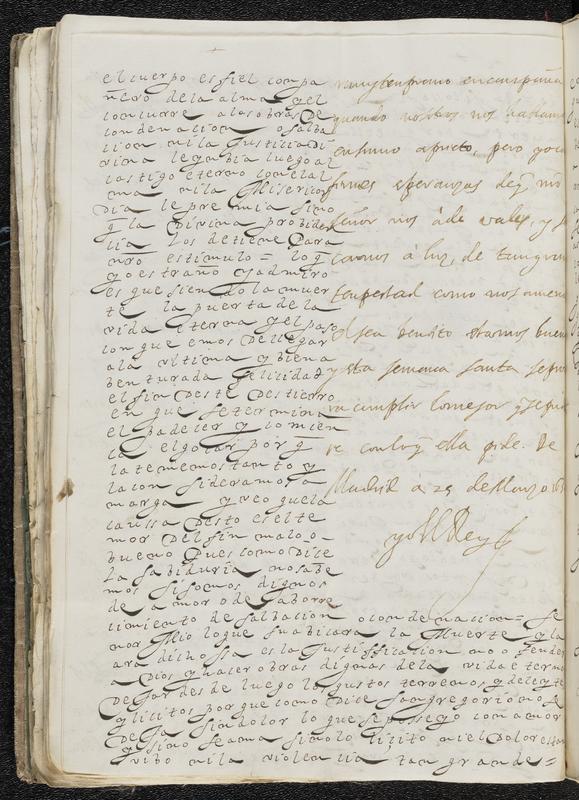 el cuerpo es fiel compa
ñero dela alma y el
concurre alas obras De
condenacion o salba
cion nila Justicia Di
vina le ynbia luego al
castigo eterno conelal
ma nila Misericor
Dia le premia sino
q̃ la Divina probiden
cia los detiene Para
nr̃o estimulo = lo q̃
yo estraño y admiro
es que siendo la muer
te la puerta dela
vida eterna y el paso
con que emos De llegar
ala vltima y biena
benturada felicidad
el fin deste Destierro
en que se termina
el padecer y comien
ca el goçar por q̃
la tememos tanto y
la con sideramos a
marga y veo quela
caussa Desto es el te
mor Del fin malo o
bueno Pues como Dice
La sabiduria no sabe
mos si somos dignos
de amor o de aborre
cimiento de salbacion o condenacion = Se
ñor Mio lo que suabiçara la Muerte y la
ara dichossa es la Justifficacion no ofender
a Dios y hacer obras dignas dela vida eterna
Dejar desde luego los gustos terrenos y deleyte
y licitos porque como Dice San gregorio no se
Deja sin dolor lo que se posseyo con amor
y sino se ama sino lo licito ni el Dolor es tan
vibo nila violencia tan grande =
muy temprano en campaña
quando nosotros nos hallamos
en sumo aprieto, pero yo
firmes esperanzas de q̃ nr̃o
señor nos à de valer, y
carnos à luz, de tan gran
tempestad como nos amena
el sea bendito estamos buenos
y esta semana santa se pro
ra cumplir lo mejor q̃ se pu
re conlo q̃ ella pide. De
Madrid à 25 de Março
yo el Rey